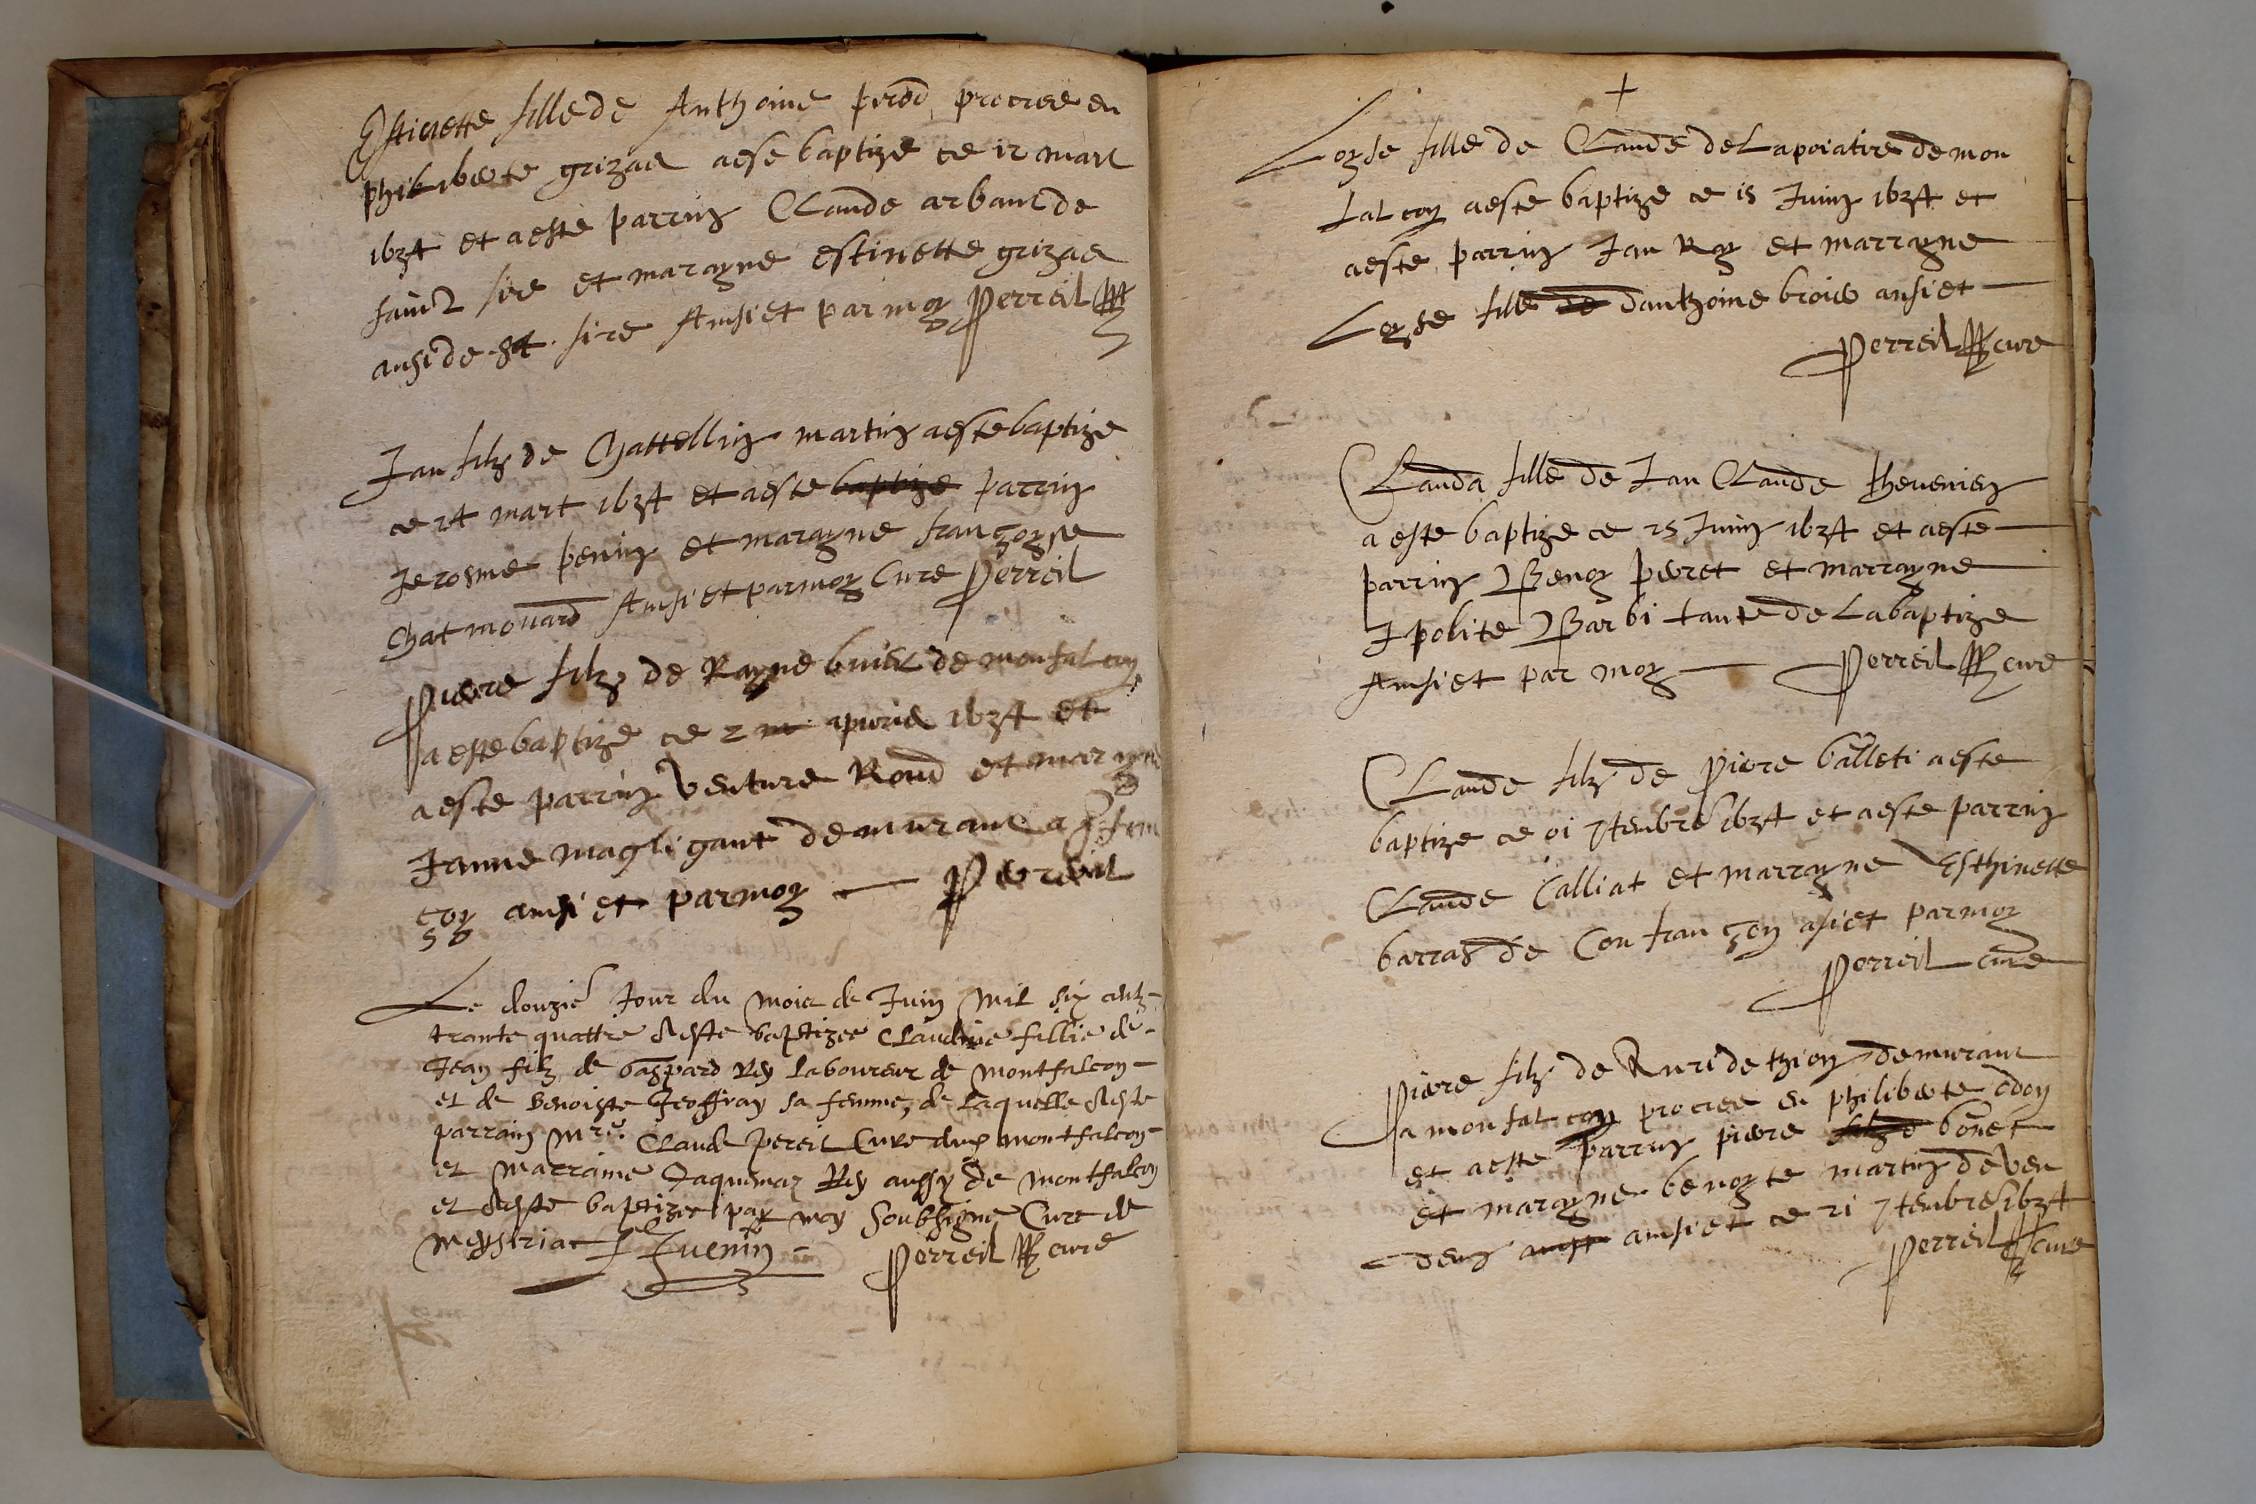 Estienette fille de Anthoine perod procree en
philiberte grizard aeste baptize ce 12 mars
1634 et aeste parrin Claude arbant de
sainct sire et marayne estinette grizard
ansi de st sire Ainsi et par moy Perreil
Jan filz de Chattellin martin aeste baptize
ce 24 mart 1634 et aeste baptize parrin
Jerosme penin et marayne françoyse
Chatmouard Ainsi et par moy Cure Perreil
Pierre filz de Rayne de monfalcon
a este baptize ce 2 m apvril 1634 et
aeste parrin venture Roud et marayne
Janne magligant demurant a
coy ainsi et par moy Perreil
Le douzie Jour du mois de Juin mil six centz
trante quattre A este baptizee Claudine fillie de
Jean filz de Gaspard Rey laboureur de montfalcon
et de Benoiste Geoffray sa femme, de laquelle A este
parrain Mre Claude Pereil Cure dud montfalcon
et marraine Jaquemaz Rey aussy de montfalcon
et A este baptizee par moy Soubsigne Cure de
Meysiriat J Juenin
Perreil cure
+
Loyse fille de Claude de Lapoiatire de mon
falcoy aeste baptize ce 15 Juin 1634 et
aeste parrin Jan Roy et marrayne
Loyse fille de danthoine broier ansi et
Perreil cure
Clauda fille de Jan Claude thevenien
a este baptize ce 25 Juin 1634 et aeste
parrin Benoy peret et marrayne
Ipolite Barbi tante de La baptize
Ainsi et par moy Perreil cure
Claude filz de Piere balleti aeste
baptize ce 01 7tembre 1634 et aeste parrin
Claude Calliat et marrayne Esthinette
barras de Confrançon asi et par moy
Perreil cure
Piere filz de demurant
a monfalcon procree en philiberte odon
et aeste parrin piere filz d bonet
et marayne benoyte martin de ven
dens ainsi et ce 21 7tembre 1634
Perreil cure